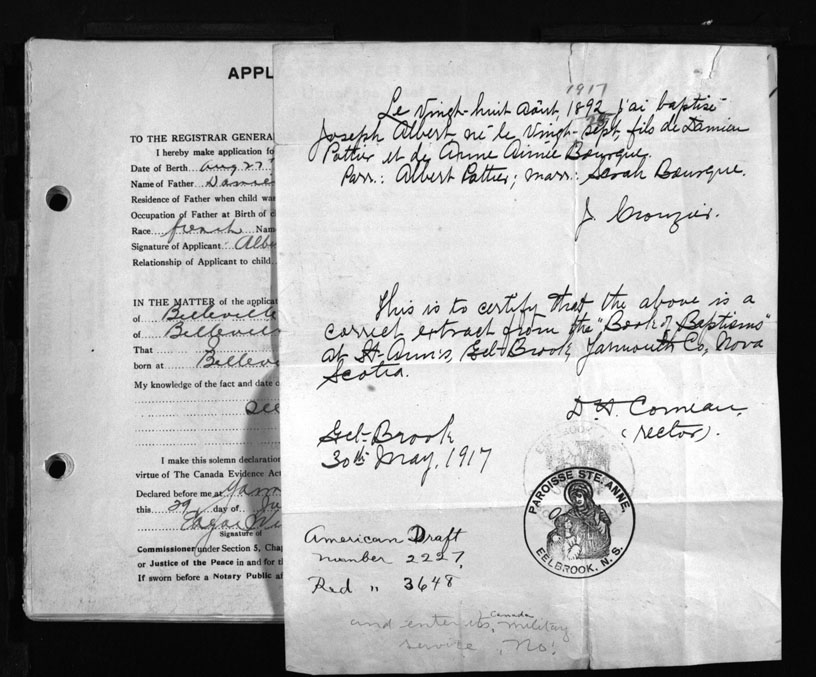 APPL
TO THE REGISTRAR GENERA
I hereby make application fo
Date of Birth Aug 27
Name of Father Damie
Residence of Father when child wa
Occupation of Father at Birth of c
Race french Nam
Signature of Applicant Albe
Relationship of Applicant to child
IN THE MATTER of the applicat
of Belleville
of Belleville
That
born at Bellev
My knowledge of the fact and date o
see
I make this solemn declaration
virtue of The Canada Evidence Act
Declared before me at Yarm
this 29 day of Ju
Edgar
Signature of
Commissioner under Section 5, Chap
or Justice of the Peace in and for th
If sworn before a Notary Public af
1917
Le vingt-huit Août, 1892 j'ai baptisé
25
Joseph Albert né le vingt-sept fils de Damien
Pottier et de Anne Aimée Bourque.
Parr.: Albert Pottier; marr.: Sarah Bourque.
J. Crouzier.
This is to certify that the above is a
correct extract from the "Book of Baptisms"
at St. Ann's, Eel-Brook, Yarmouth Co., Nova
Scotia.
D. H. Comeau,
(rector).
Eel-Brook
30th May, 1917
PAROISSE STE. ANNE.
EELBROOK, N.S.
American Draft
number 2227,
Red " 3648
and enter its Canada military
service, No!